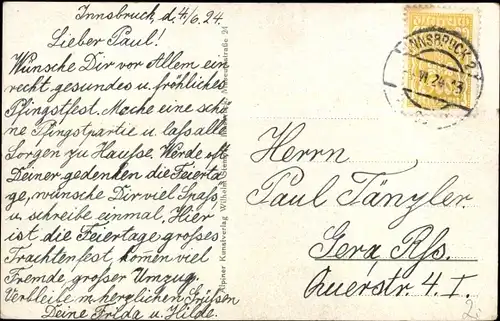 Innsbruck, d. 4/6.24.
Lieber Paul!
Wünsche Dir vor Allem ein
recht gesundes u. fröhliches
Pfingstfest. Mache eine schö
ne Pfingstpartie u. laß alle
Sorgen zu Hause. Werde oft
Deiner gedenken die Feierta
ge, wünsche Dir viel Spaß
u. schreibe einmal. Hier
ist die Feiertage großes
Trachtenfest, komen viel
Fremde, großer Umzug.
Verbleibe m. herzlichen Grüßen
Deine Frida u. Hilde.
Alpiner Kunstverlag Wilhelm Stempfle, Innsbruck, Museumstraße 24
INNSBRUCK 2
VI 24
Herrn
Paul Tänzler
Gera, Rß.
Querstr. 4 I.